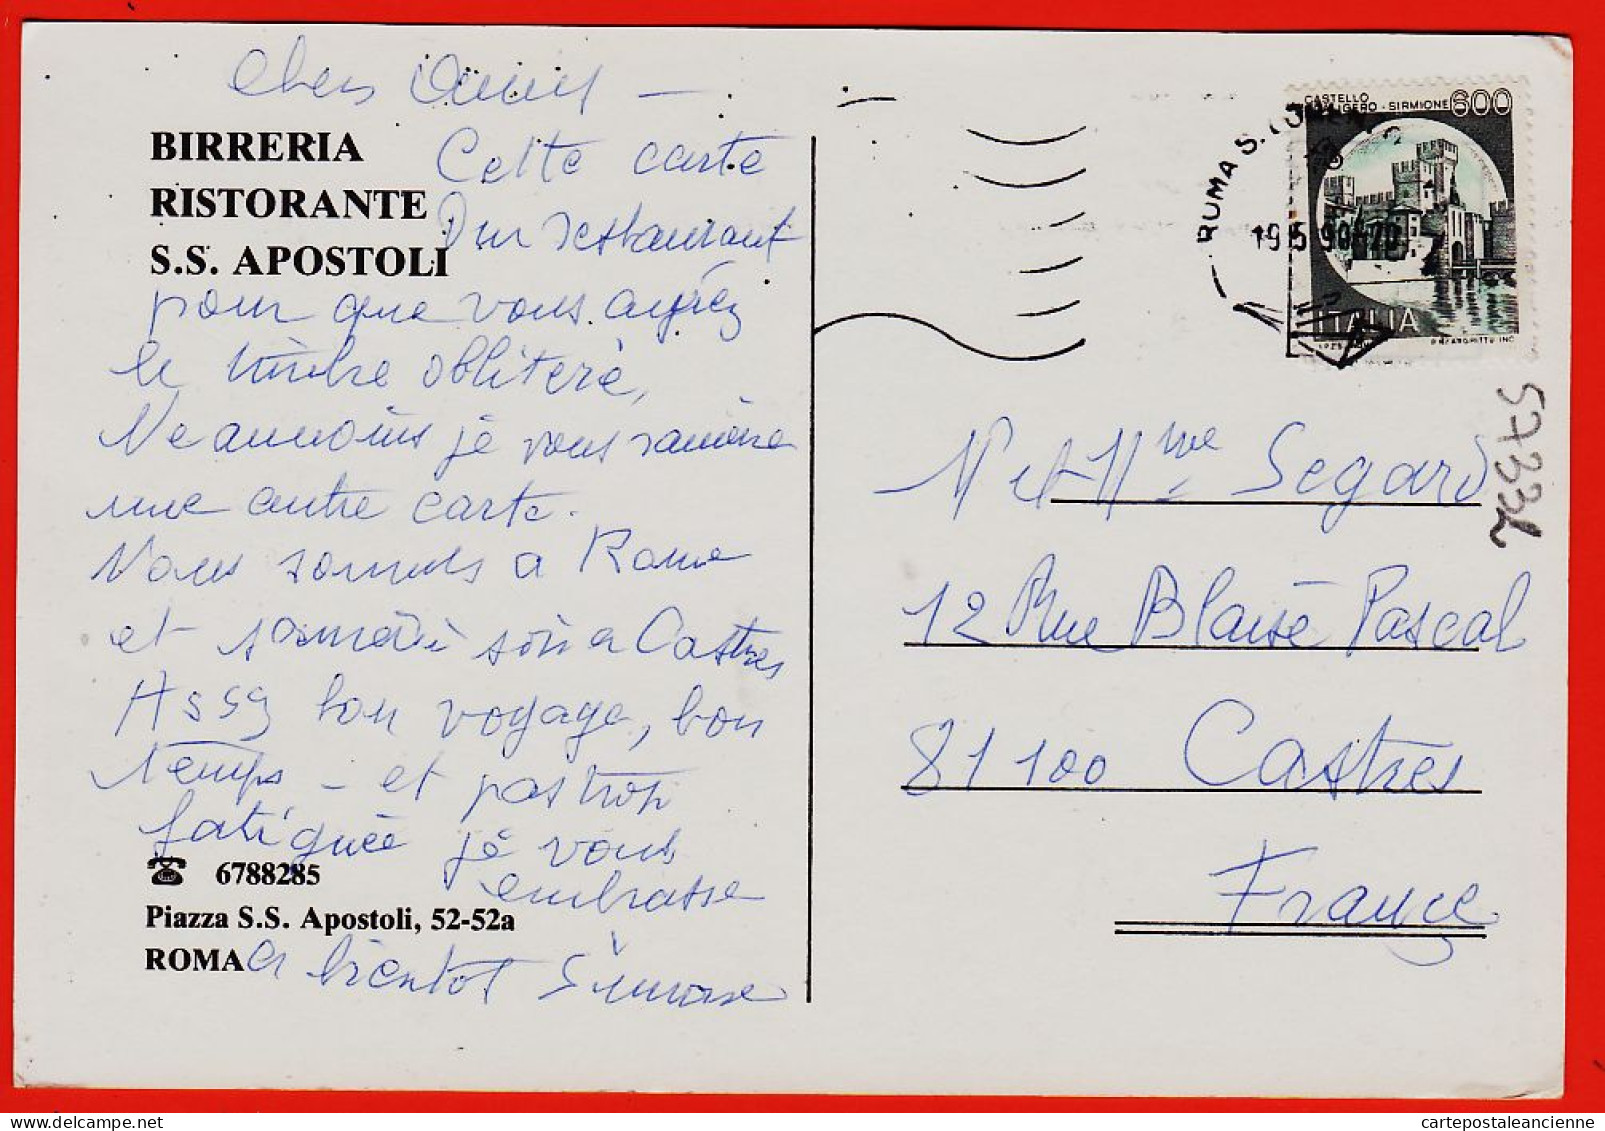 Chers Amis —
BIRRERIA
RISTORANTE
S.S. APOSTOLI
Cette carte
Du restaurant
pour que vous ayiéz
le timbre oblitéré,
Neanmoins je vous ramène
une autre carte.
Nous sommes a Rome
et samedi soir a Castres
Assez bon voyage, bon
temps - et pas trop
fatiguée je vous
embrasse
6788285
Piazza S.S. Apostoli, 52-52a
ROMA
a bientot Simone
CASTELLO
SCALIGERO - SIRMIONE 600
ITALIA
ROMA S. LORENZO
19 5 90
M et Mme Segard
12 Rue Blaise Pascal
81100 Castres
France
57332
cartepostaleancienne.com